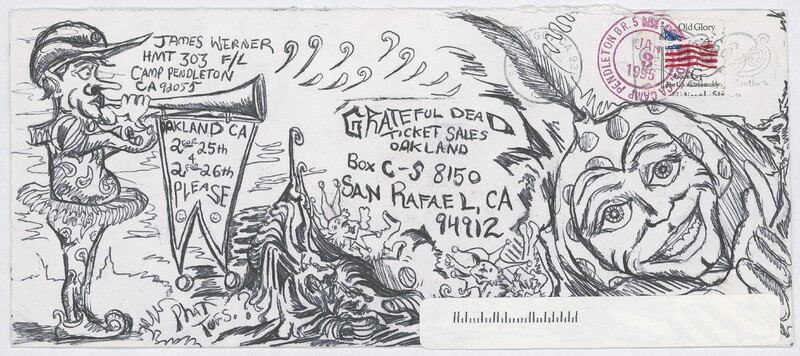 JAMES WERNER
HMT 303 F/L
CAMP PENDLETON
CA 92055
OAKLAND CA
2 FOR 25th
&
2 FOR 26th
PLEASE
GRATEFUL DEAD
TICKET SALES
OAKLAND
BOX C-S 8150
SAN RAFAEL, CA
94912
PHAT
CAMP PENDLETON BR. 5
JAN
1995
Old Glory